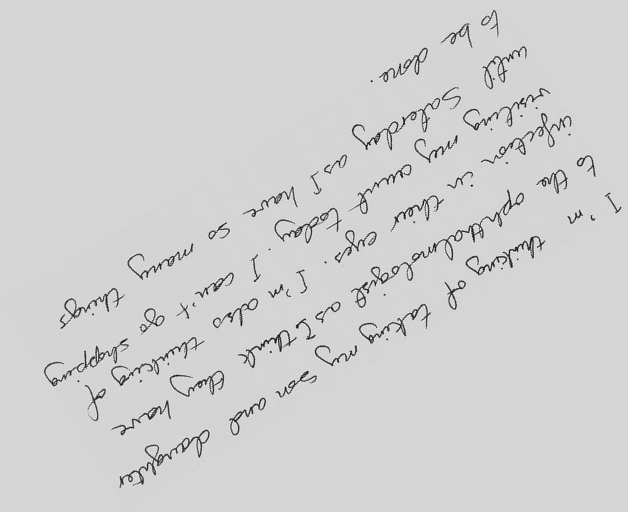 I'm thinking of taking my son and daughter
to the ophthalmologist as I think they have
infection in their eyes. I'm also thinking of
visiting my aunt today. I can't go shopping
until Saterday as I have so many things
to be done.